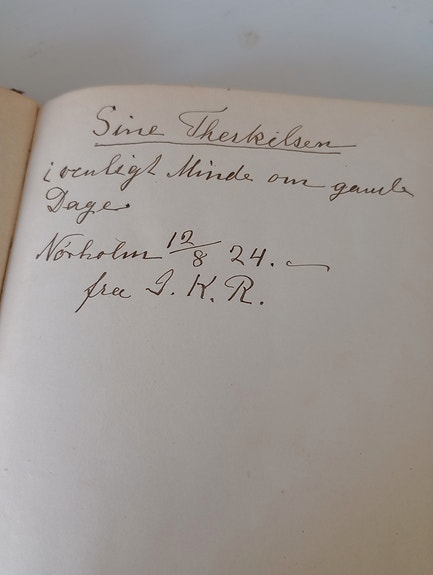 Sine Therkilsen
i venligt Minde om gamle
Dage.
Nørholm 12/8 24.
fra J. K. R.